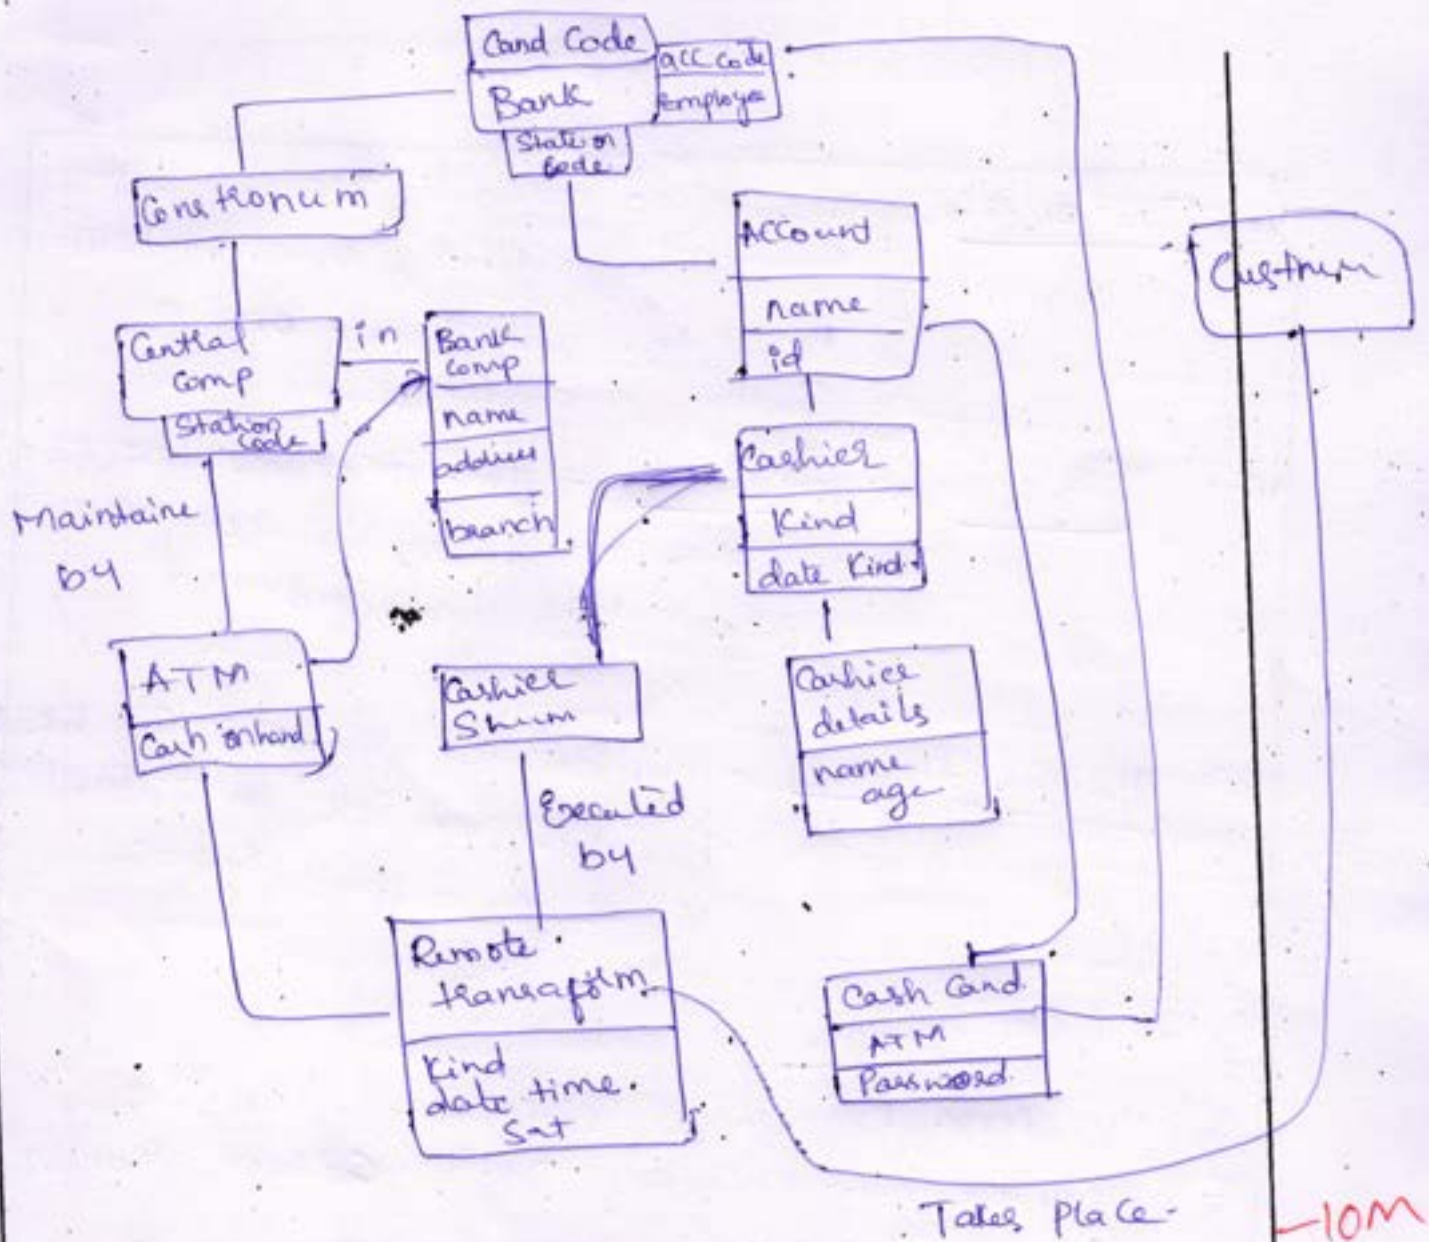 Cand Code
acc code
Bank
Employee
Station
Code
Constronum
Account
name
id
Custnem
Central
Comp
in
Bank
Comp
Station
Code
name
address
branch
Cashier
Kind
date Kind
Maintaine
by
ATM
Cash onhand
Cashier
Cashier
details
name
age
Executed
by
Remote
Kind
date time
Cash Cand
ATM
Password
Takes Place
10M